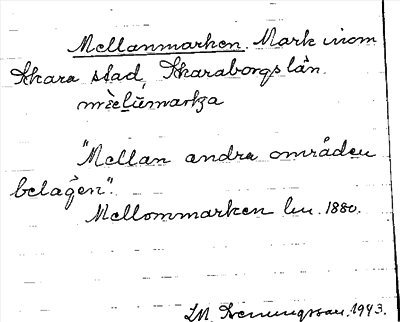 Mellanmarken. Mark inom
Skara stad, Skaraborgs län.
"Mellan andra områden
belägen".
Mellommarken lm. 1880.
1943.